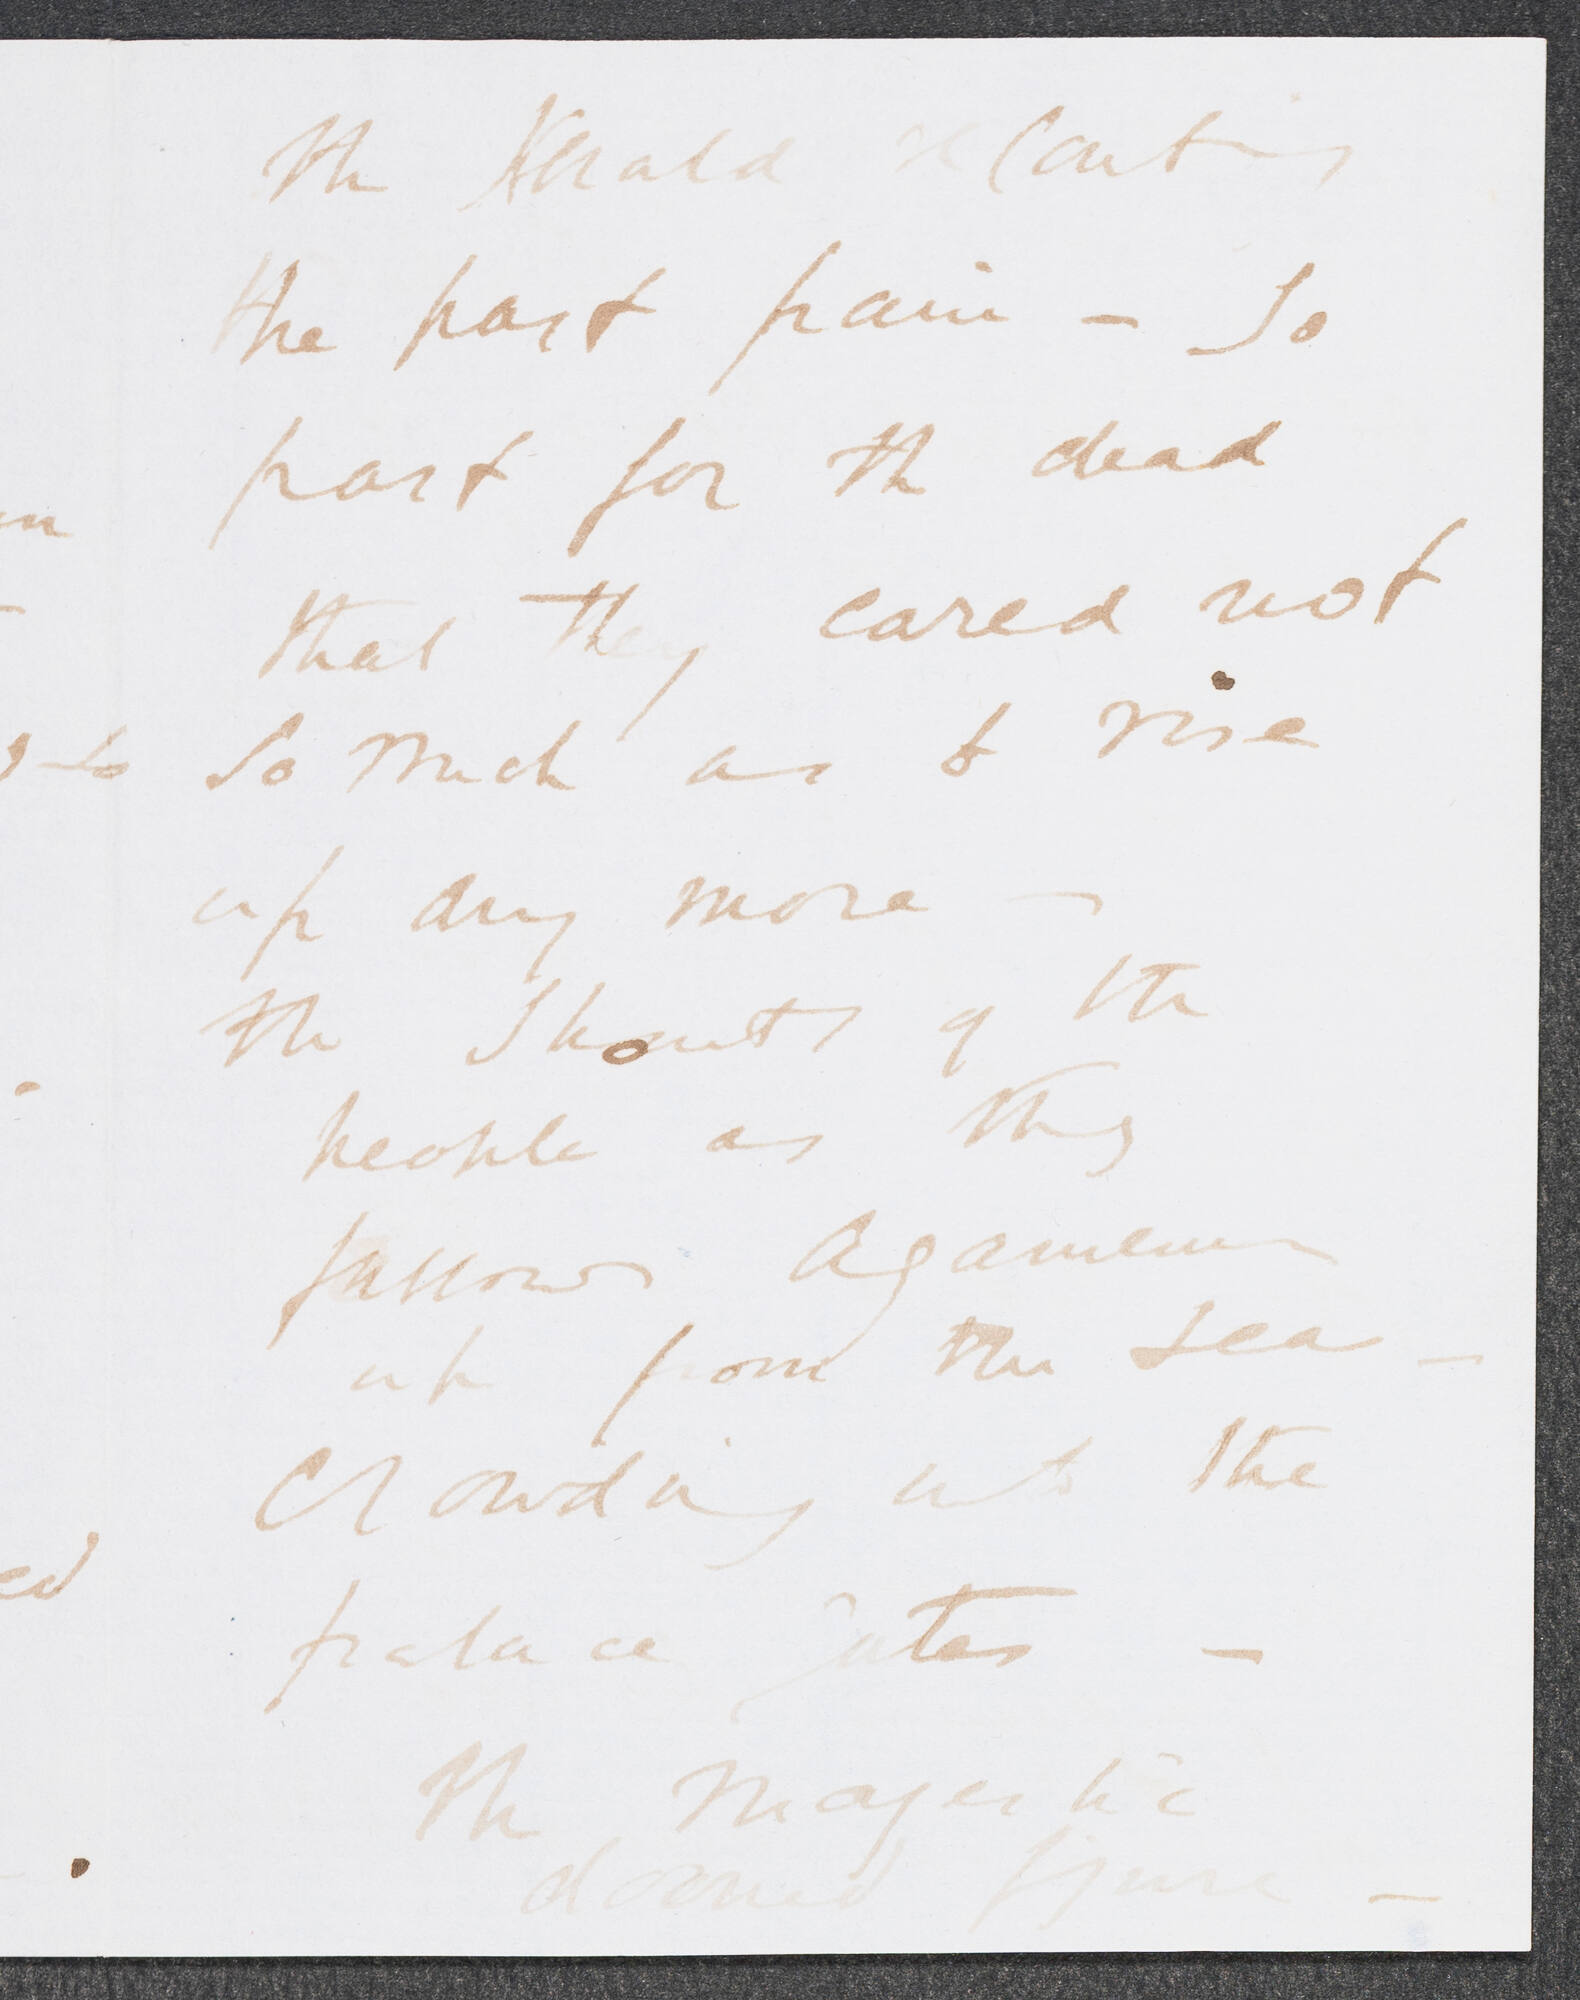 the Herald recounting
the past pain - So
past for the dead
that they cared not
so much as to rise
up any more -
the Shouts of the
people as they
follow Agamemnon
up from the Sea -
Crowding into the
palace Gates -
The Majestic
doomed figure -